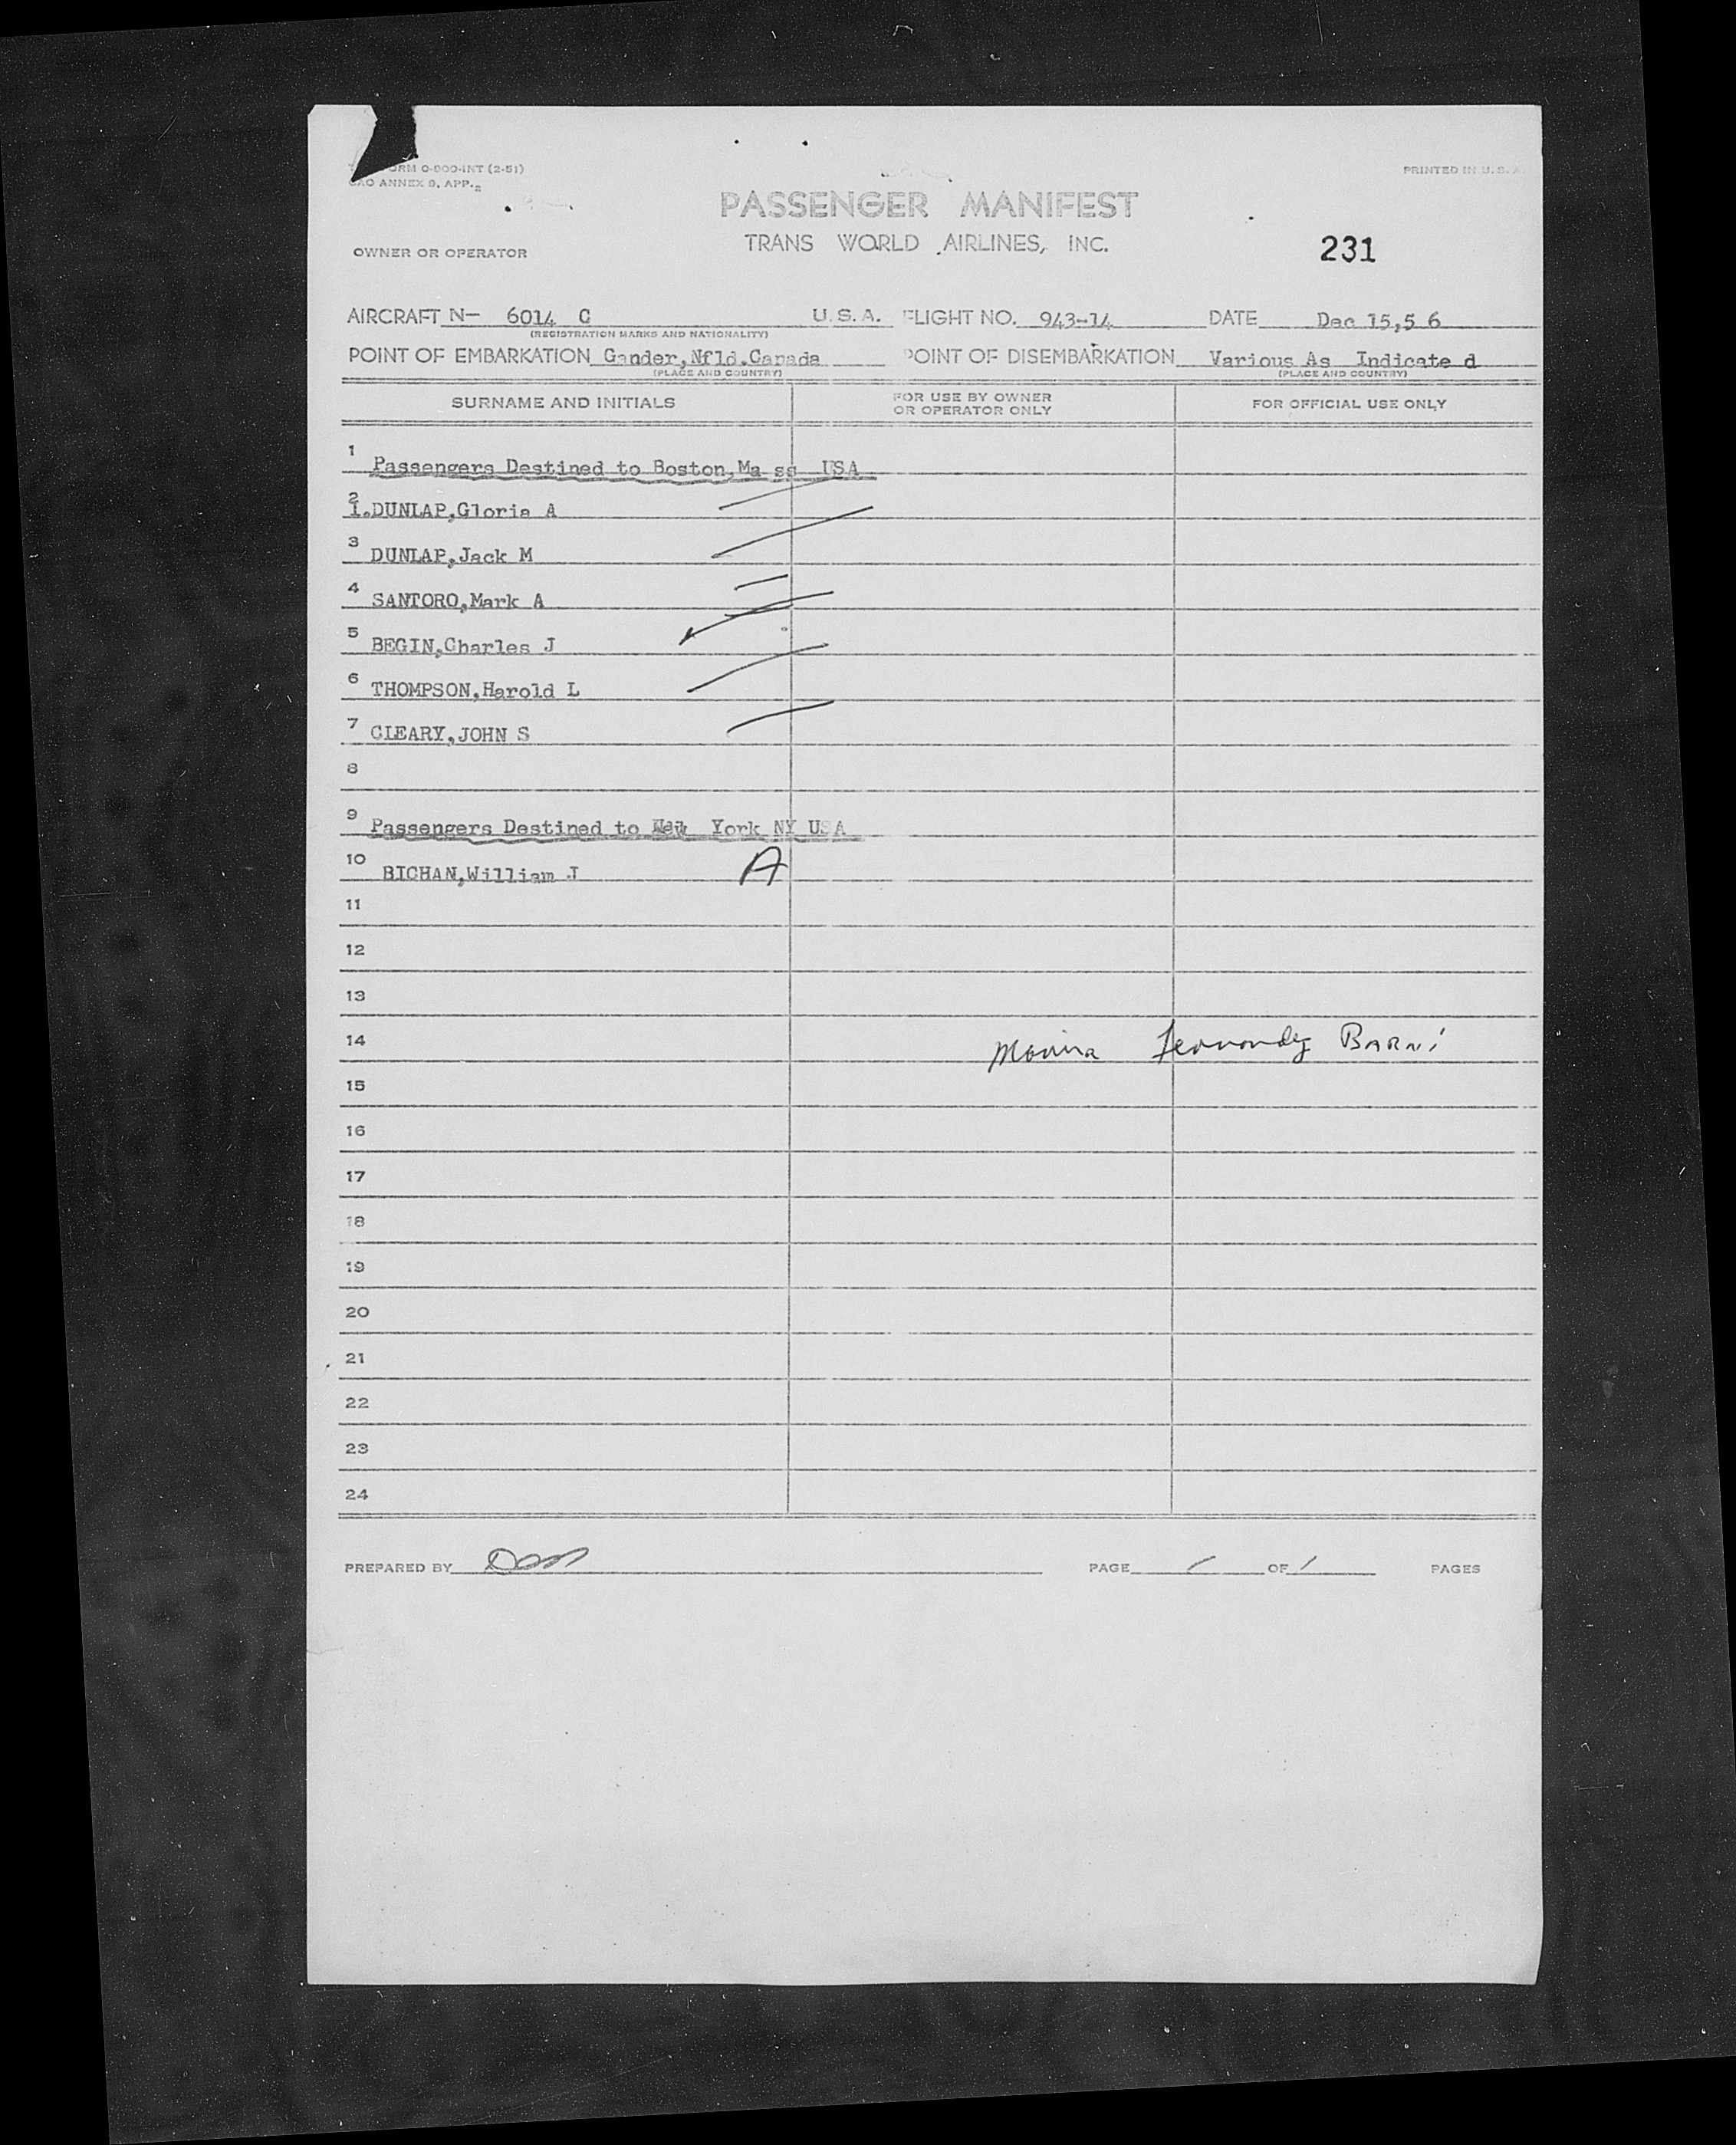 FORM O-800-INT (2-51)
PRINTED IN U.S.A.
ANNEX 9, APP. 2
PASSENGER MANIFEST
TRANS WORLD AIRLINES, INC.
231
OWNER OR OPERATOR
AIRCRAFT N- 6014 C U.S.A. FLIGHT NO. 943-14 DATE Dec 15,5 6
(REGISTRATION MARKS AND NATIONALITY)
POINT OF EMBARKATION Gander,Nfld.Canada POINT OF DISEMBARKATION Various As Indicate d
(PLACE AND COUNTRY) (PLACE AND COUNTRY)
SURNAME AND INITIALS FOR USE BY OWNER OR OPERATOR ONLY FOR OFFICIAL USE ONLY
1 Passengers Destined to Boston,Ma ss USA
2 1.DUNLAP,Gloria A
3 DUNLAP,Jack M
4 SANTORO,Mark A
5 BEGIN,Charles J
6 THOMPSON,Harold L
7 CLEARY,JOHN S
8
9 Passengers Destined to New York NY USA
10 BICHAN,William J A
11
12
13
14 Fernandez BARNI
15
16
17
18
19
20
21
22
23
24
PREPARED BY PAGE 1 OF 1 PAGES